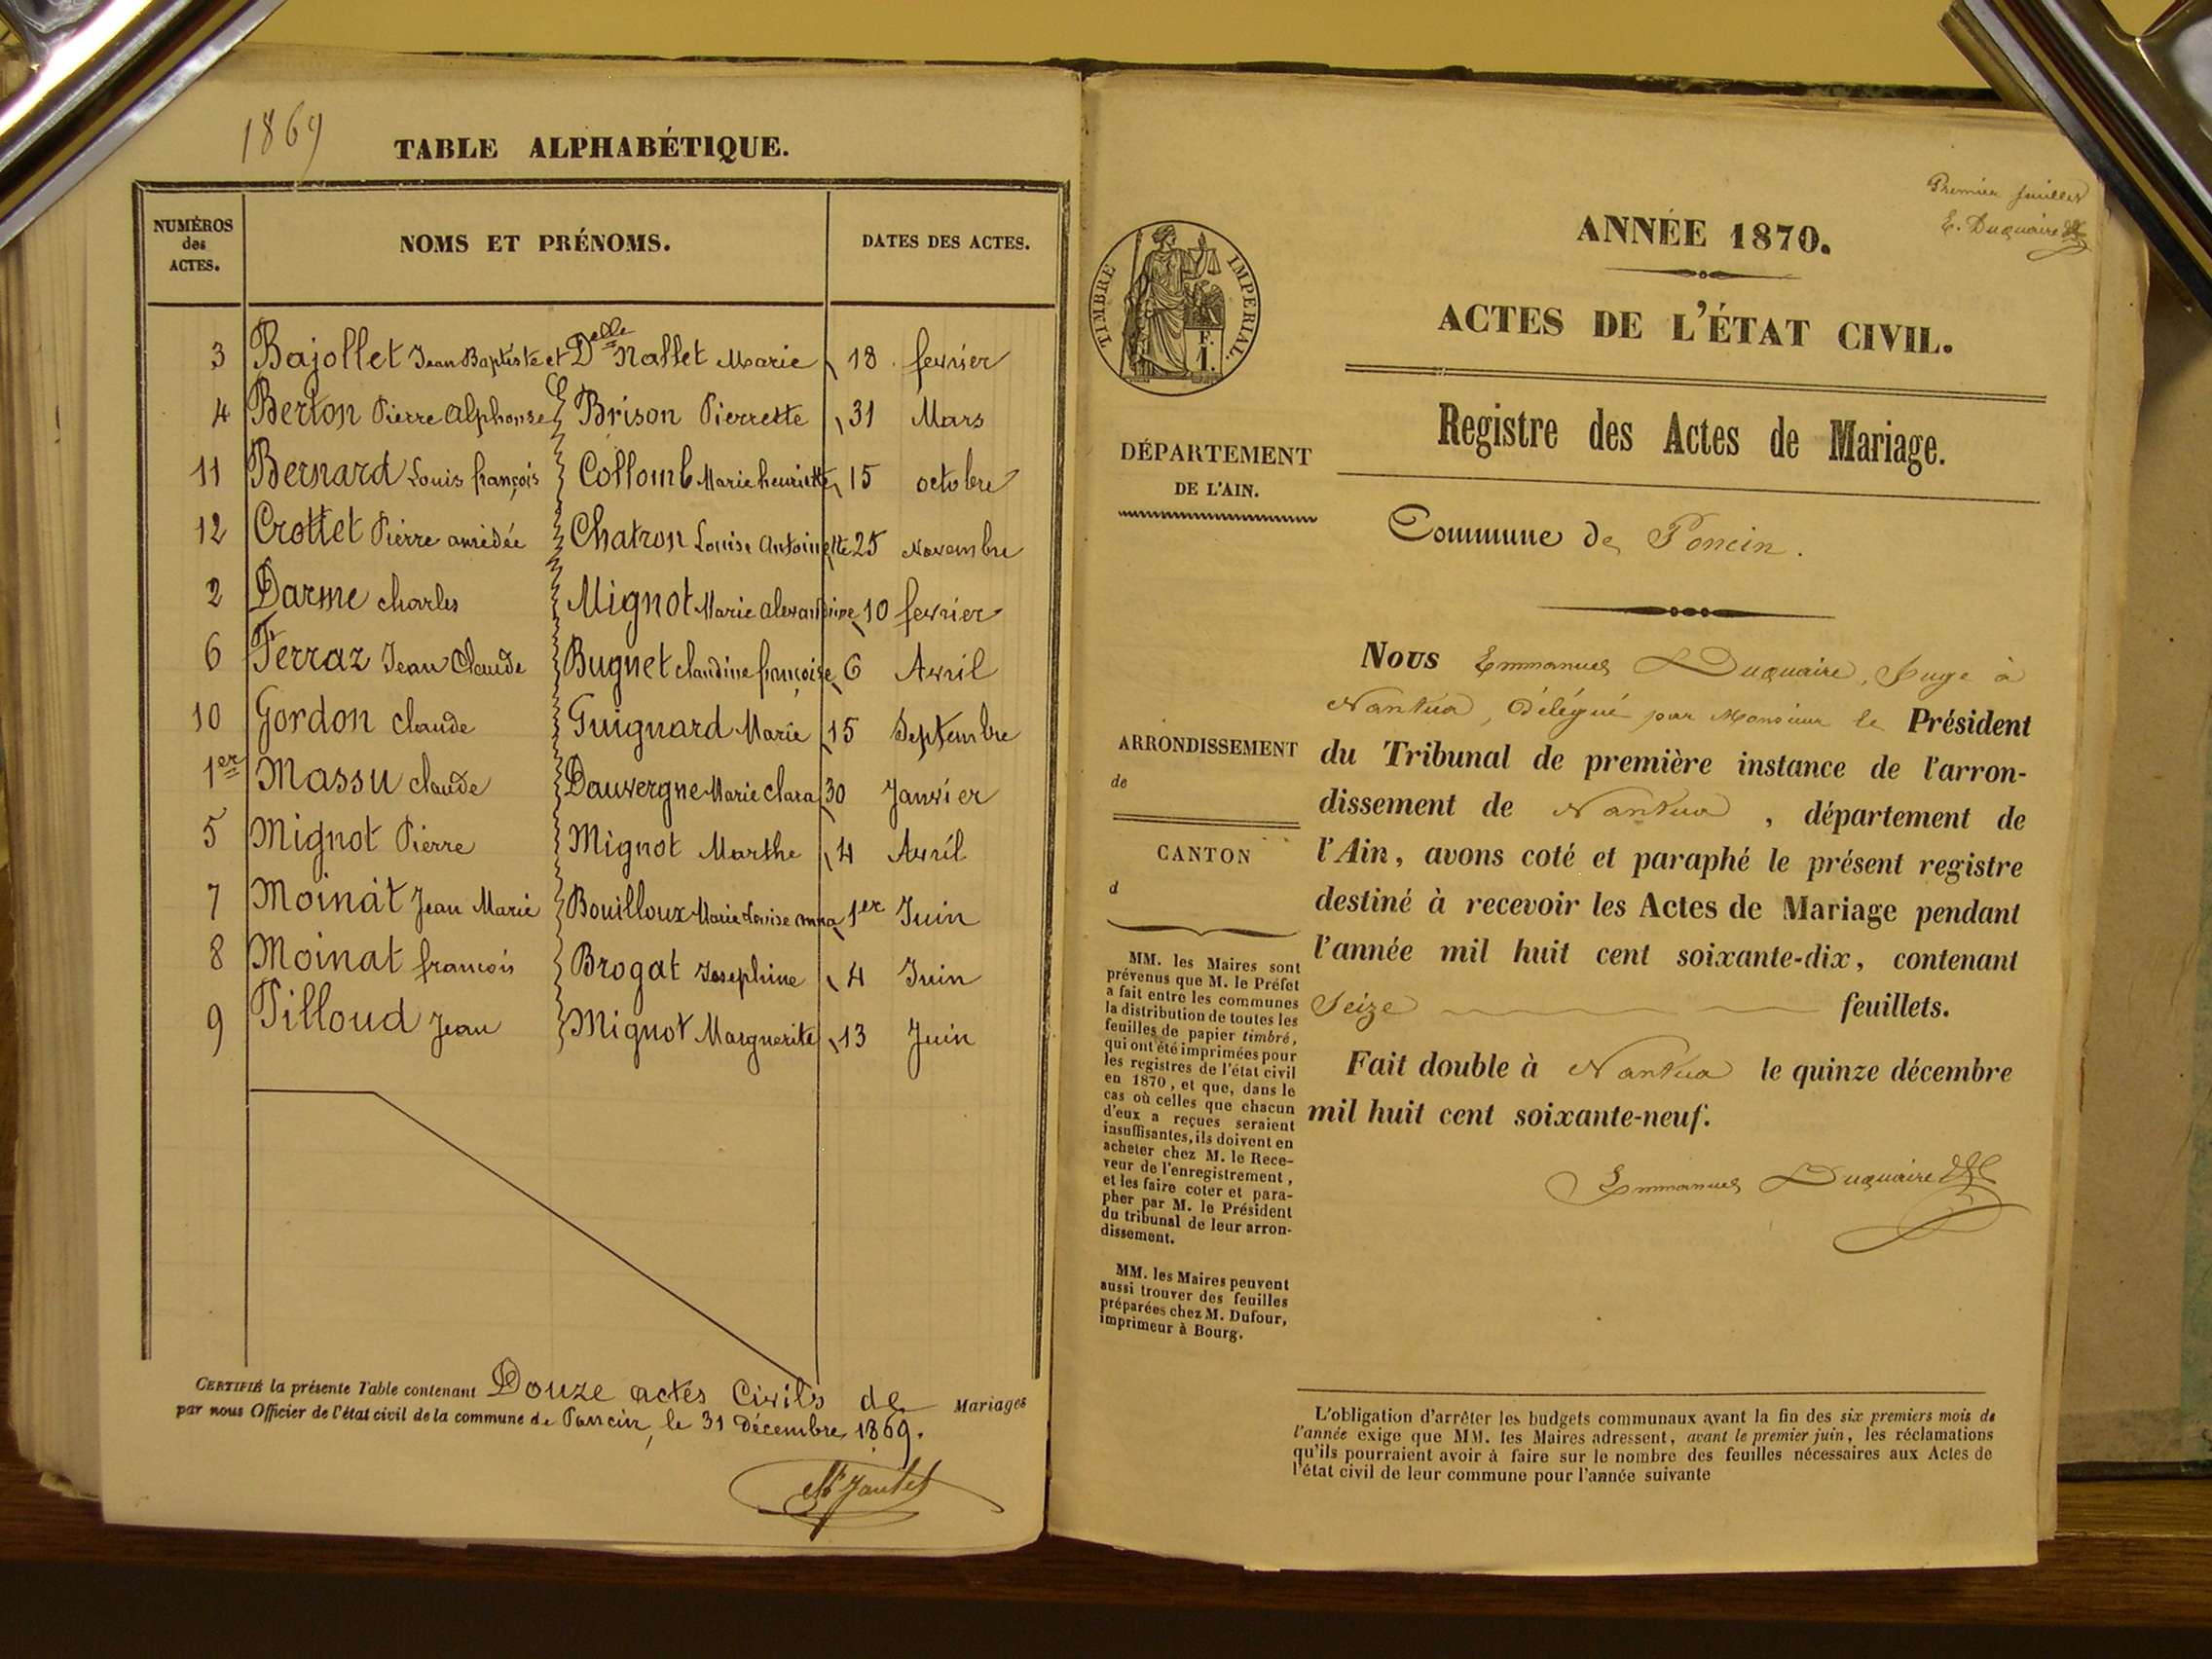 1869
TABLE ALPHABÉTIQUE.
NUMÉROS des ACTES. NOMS ET PRÉNOMS. DATES DES ACTES.
3 Bajollet Jean Baptiste et Delle Nallet Marie 18 fevrier
4 Berton Pierre Alphonse Brison Pierrette 31 Mars
11 Bernard Louis françois Collomb Marie henriette 15 octobre
12 Crottet Pierre amédée Chatron Louise Antoinette 25 Novembre
2 Darme charles Mignot Marie Alexandrine 10 fevrier
6 Ferraz Jean Claude Bugnet claudine françoise 6 Avril
10 Gordon claude Guignard Marie 15 Septembre
1er Massu claude Dauvergne Marie Clara 30 Janvier
5 Mignot Pierre Mignot Marthe 4 Avril
7 Moinat Jean Marie Bouilloux Marie Louise anna 1er Juin
8 Moinat francois Brogat Josephine 4 Juin
9 Pilloud Jean Mignot Marguerite 13 Juin
CERTIFIÉ la présente Table contenant Douze actes Civils de Mariages
par nous Officier de l'état civil de la commune de Poncin, le 31 Décembre 1869.
Premier feuillet
E. Duquaire
ANNÉE 1870.
ACTES DE L'ÉTAT CIVIL.
TIMBRE IMPERIAL.
F.
1.
Registre des Actes de Mariage.
DÉPARTEMENT
DE L'AIN.
Commune de Poncin.
Nous Emmanuel Duquaire, Juge à
Nantua, délégué par Monsieur le Président
du Tribunal de première instance de l'arron-
dissement de Nantua, département de
l'Ain, avons coté et paraphé le présent registre
destiné à recevoir les Actes de Mariage pendant
l'année mil huit cent soixante-dix, contenant
Seize feuillets.
Fait double à Nantua le quinze décembre
mil huit cent soixante-neuf.
Emmanuel Duquaire
ARRONDISSEMENT
de
CANTON
d
MM. les Maires sont
prévenus que M. le Préfet
a fait entre les communes
la distribution de toutes les
feuilles de papier timbré,
qui ont été imprimées pour
les registres de l'état civil
en 1870, et que, dans le
cas où celles que chacun
d'eux a reçues seraient
insuffisantes, ils doivent en
acheter chez M. le Rece-
veur de l'enregistrement,
et les faire coter et para-
pher par M. le Président
du tribunal de leur arron-
dissement.
MM. les Maires peuvent
aussi trouver des feuilles
préparées chez M. Dufour,
imprimeur à Bourg.
L'obligation d'arrêter les budgets communaux avant la fin des six premiers mois de
l'année exige que MM. les Maires adressent, avant le premier juin, les réclamations
qu'ils pourraient avoir à faire sur le nombre des feuilles nécessaires aux Actes de
l'état civil de leur commune pour l'année suivante